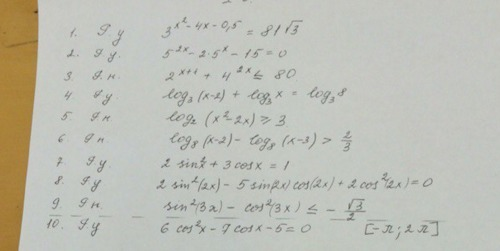 1. Р.у 3^{x²-4x-0,5} = 81√3
2. Р.у. 5^{2x} - 2·5^x - 15 = 0
3. Р.н. 2^{x+1} + 4^{2x} ≤ 80
4. Р.у. log₃(x-2) + log₃x = log₃8
5. Р.н log₂(x²-2x) ≥ 3
6. Рн log₈(x-2) - log₈(x-3) > 2/3
7. Р.у 2 sin²x + 3cosx = 1
8. Р.у 2 sin²(2x) - 5 sin(2x) cos(2x) + 2cos²(2x) = 0
9. Р.н. sin²(3x) - cos²(3x) ≤ - √3/2
10. Р.у 6 cos²x - 7 cosx - 5 = 0 [-π; 2π]